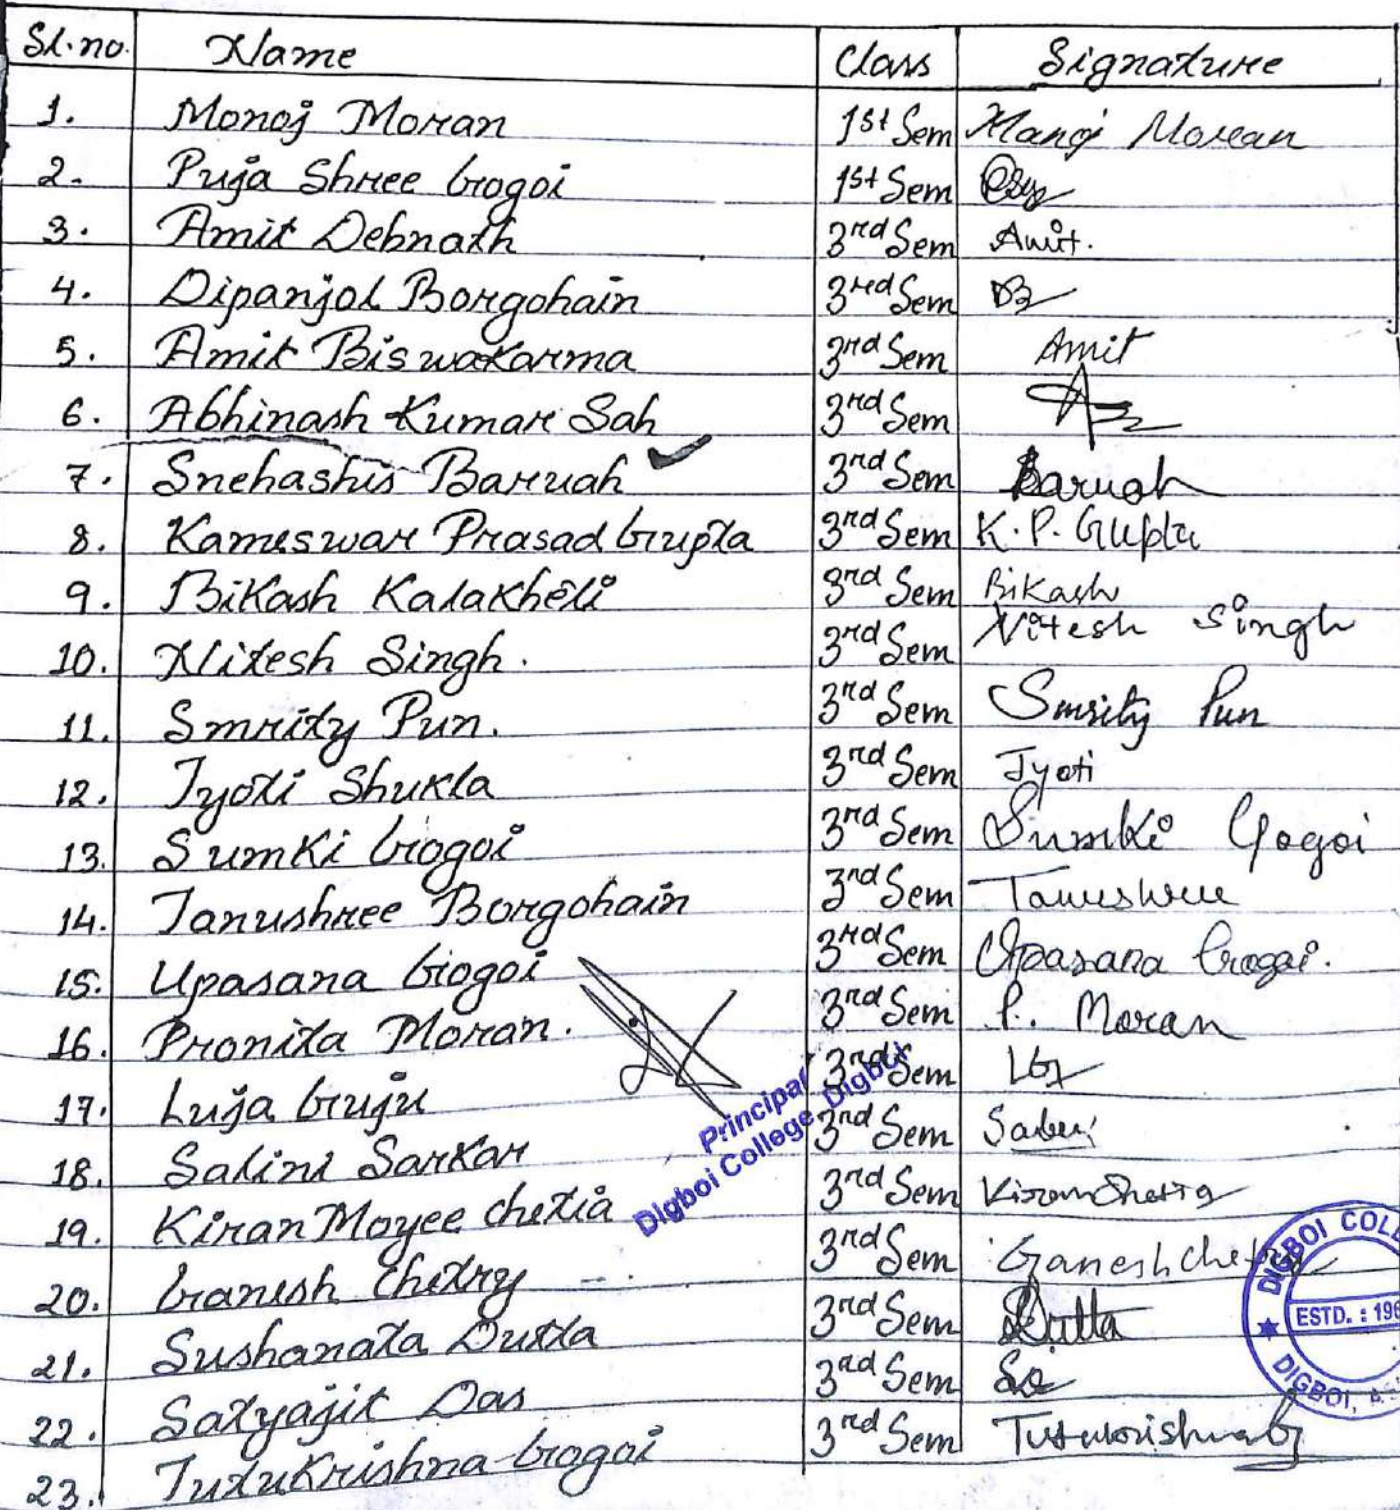 Sl.no. Name Class Signature
1. Monoj Moran 1st Sem Manoj Moran
2. Puja Shree Gogoi 1st Sem
3. Amit Debnath 3rd Sem Amit.
4. Dipanjol Borgohain 3rd Sem DB
5. Amit Biswakarma 3rd Sem Amit
6. Abhinash Kumar Sah 3rd Sem
7. Snehashis Baruah 3rd Sem Baruah
8. Kameswar Prasad Gupta 3rd Sem K.P. Gupta
9. Bikash Kalakheti 3rd Sem Bikash
10. Nitesh Singh. 3rd Sem Nitesh Singh
11. Smrity Pun. 3rd Sem Smrity Pun
12. Jyoti Shukla 3rd Sem Jyoti
13. Sumki Gogoi 3rd Sem Sumki Gogoi
14. Tanushree Borgohain 3rd Sem Tanushree
15. Upasana Gogoi 3rd Sem Upasana Gogoi.
16. Pronita Moran. 3rd Sem P. Moran
17. Luja Guju 3rd Sem
18. Salini Sarkar 3rd Sem
19. Kiran Moyee Chetia 3rd Sem
20. Ganesh Chetry 3rd Sem Ganesh Chetry
21. Sushanata Dutta 3rd Sem Dutta
22. Satyajit Das 3rd Sem
23. Tutukrishna Gogoi 3rd Sem
Principal
Digboi College, Digboi
DIGBOI COLL
ESTD. : 196
DIGBOI, A